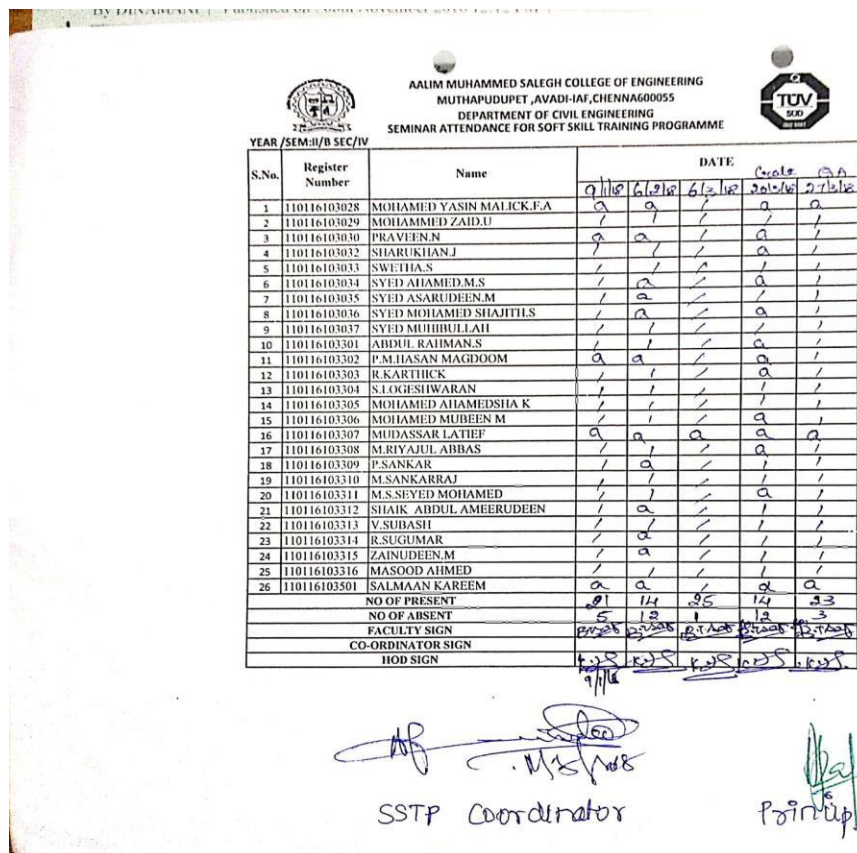 By DINAMANI | Published on : 30th November 2018 12:12 PM |
AALIM MUHAMMED SALEGH COLLEGE OF ENGINEERING
MUTHAPUDUPET ,AVADI-IAF,CHENNA600055
DEPARTMENT OF CIVIL ENGINEERING
SEMINAR ATTENDANCE FOR SOFT SKILL TRAINING PROGRAMME
TÜV
SÜD
ISO 9001
YEAR /SEM:II/B SEC/IV
S.No. Register Number Name DATE
9/1/18 6/2/18 6/3/18 20/3/18 27/3/18
1 110116103028 MOHAMED YASIN MALICK.F.A a a / a a
2 110116103029 MOHAMMED ZAID.U / / / / /
3 110116103030 PRAVEEN.N a a / a /
4 110116103032 SHARUKHAN.J / / / a /
5 110116103033 SWETHA.S / / / / /
6 110116103034 SYED AHAMED.M.S / a / a /
7 110116103035 SYED ASARUDEEN.M / a / / /
8 110116103036 SYED MOHAMED SHAJITH.S / a / a /
9 110116103037 SYED MUHIBULLAH / / / / /
10 110116103301 ABDUL RAHMAN.S / / / a /
11 110116103302 P.M.HASAN MAGDOOM a a / a /
12 110116103303 R.KARTHICK / / / a /
13 110116103304 S.LOGESHWARAN / / / / /
14 110116103305 MOHAMED AHAMEDSHA K / / / / /
15 110116103306 MOHAMED MUBEEN M / / / a /
16 110116103307 MUDASSAR LATIEF a a a a a
17 110116103308 M.RIYAJUL ABBAS / / / a /
18 110116103309 P.SANKAR / a / / /
19 110116103310 M.SANKARRAJ / / / / /
20 110116103311 M.S.SEYED MOHAMED / / / a /
21 110116103312 SHAIK ABDUL AMEERUDEEN / a / / /
22 110116103313 V.SUBASH / / / / /
23 110116103314 R.SUGUMAR / a / / /
24 110116103315 ZAINUDEEN.M / a / / /
25 110116103316 MASOOD AHMED / / / / /
26 110116103501 SALMAAN KAREEM a a / a a
NO OF PRESENT 21 14 25 14 23
NO OF ABSENT 5 12 1 12 3
FACULTY SIGN
CO-ORDINATOR SIGN
HOD SIGN
9/1/18
SSTP Coordinator
Principal